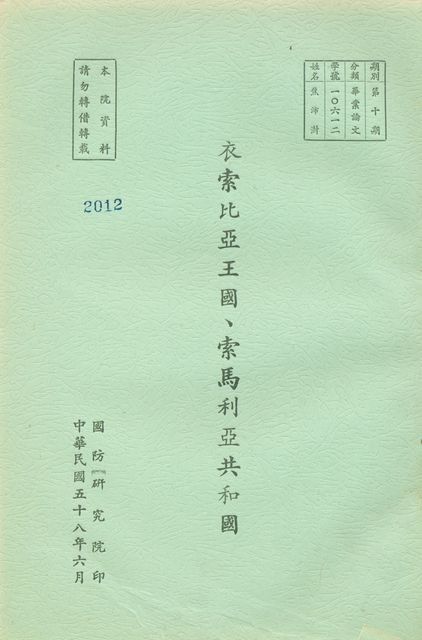 期別 第十期
分類 畢業論文
學號 一〇六一二
姓名 張沛
衣索比亞王國、索馬利亞共和國
本院資料
請勿轉借轉載
2012
國防研究院印
中華民國五十八年六月